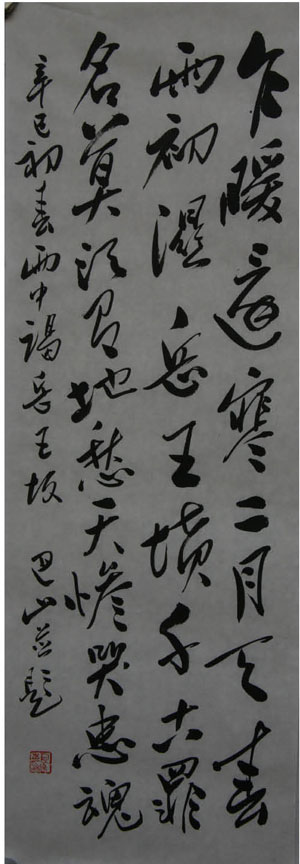 乍暖還寒二月天春
雨初濕岳王墳千古罪
名莫須有地愁天惨哭忠魂
辛巳初春雨中謁岳王坟 巴山並题